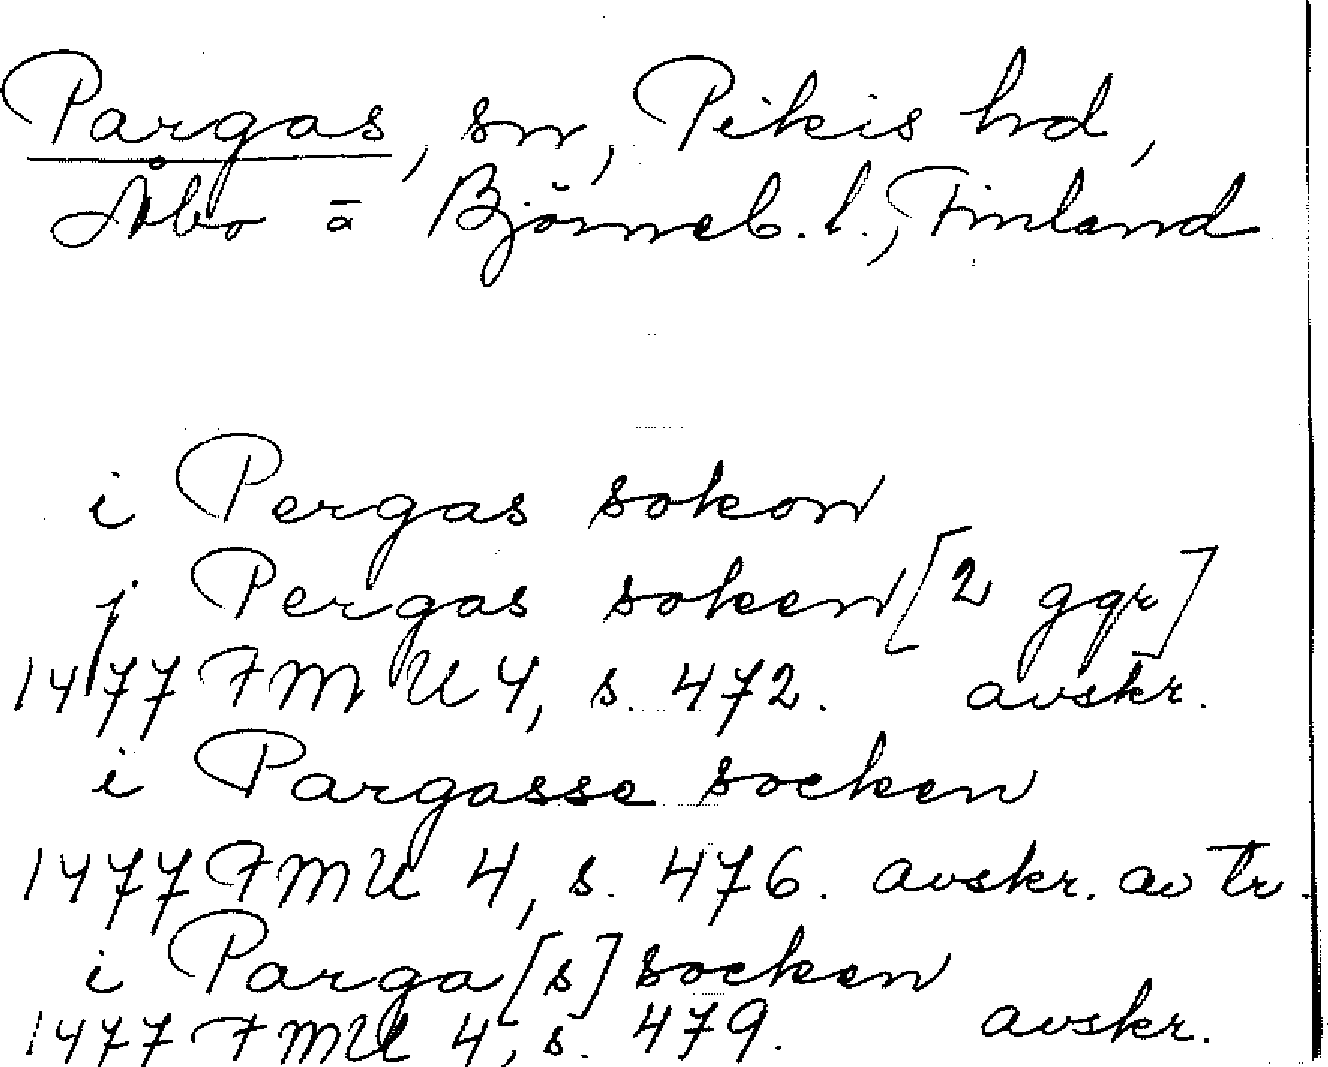 Pargas, sn, Pikis hd,
Åbo o Björneb. l., Finland
i Pergas sokon
j Pergas soken [2 ggr]
1477 FMU 4, s. 472. avskr.
i Pargasse socken
1477 FMU 4, s. 476. avskr. av tr.
i Parga[s] socken
1477 FMU 4, s. 479. avskr.